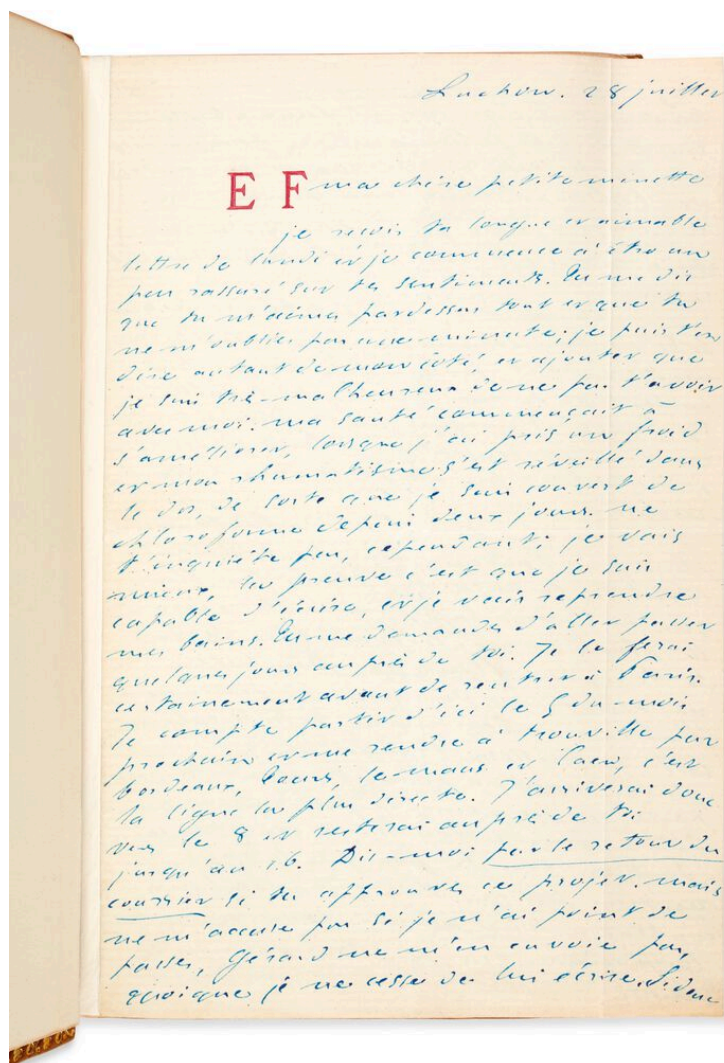 Luchon. 28 juillet
E F ma chère petite minette
je reçois ta longue et aimable
lettre de lundi et je commence à être un
peu rassuré sur tes sentiments. Tu me dis
que tu m'aimes pardessus tout et que tu
ne m'oublies pas une minute; je puis t'en
dire autant de mon côté, et ajouter que
je suis très-malheureux de ne pas t'avoir
avec moi. ma santé commençait à
s'améliorer, lorsque j'ai pris un froid
et mon rhumatisme s'est réveillé dans
le dos, de sorte que je suis couvert de
chloroforme depuis deux jours. ne
t'inquiète pas, cependant; je vais
mieux, la preuve c'est que je suis
capable d'écrire, et je vais reprendre
mes bains. Tu me demandes d'aller passer
quelques jours auprès de toi. Je le ferai
certainement avant de rentrer à Paris.
Je compte partir d'ici le 5 du mois
prochain et me rendre à trouville par
bordeaux, Tours, le mans et Caen, c'est
la ligne la plus directe. J'arriverai donc
vers le 8 et resterai auprès de toi
jusqu'au 16. Dis-moi par le retour du
courrier si tu approuves ce projet. mais
ne m'accuse pas si je n'ai point de
passes, Gérard ne m'en envoie pas,
quoique je ne cesse de lui écrire. Si donc